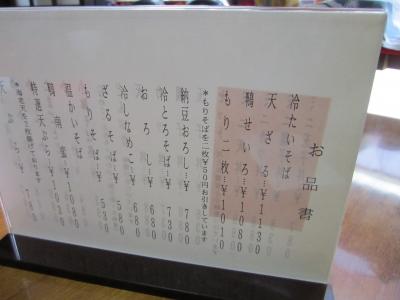 お品書
冷たいそば
天ざる…¥1130
鴨せいろ…¥1080
もり二枚…¥1010
*もりそばを二枚¥50円お引きしています
納豆おろし…¥780
冷とろそば…¥730
おろし…¥680
冷しなめこ…¥680
ざるそば…¥580
もりそば…¥530
温かいそば
鴨南蛮¥1080
特選天ぷら¥1030
*海老天を2枚揚げております